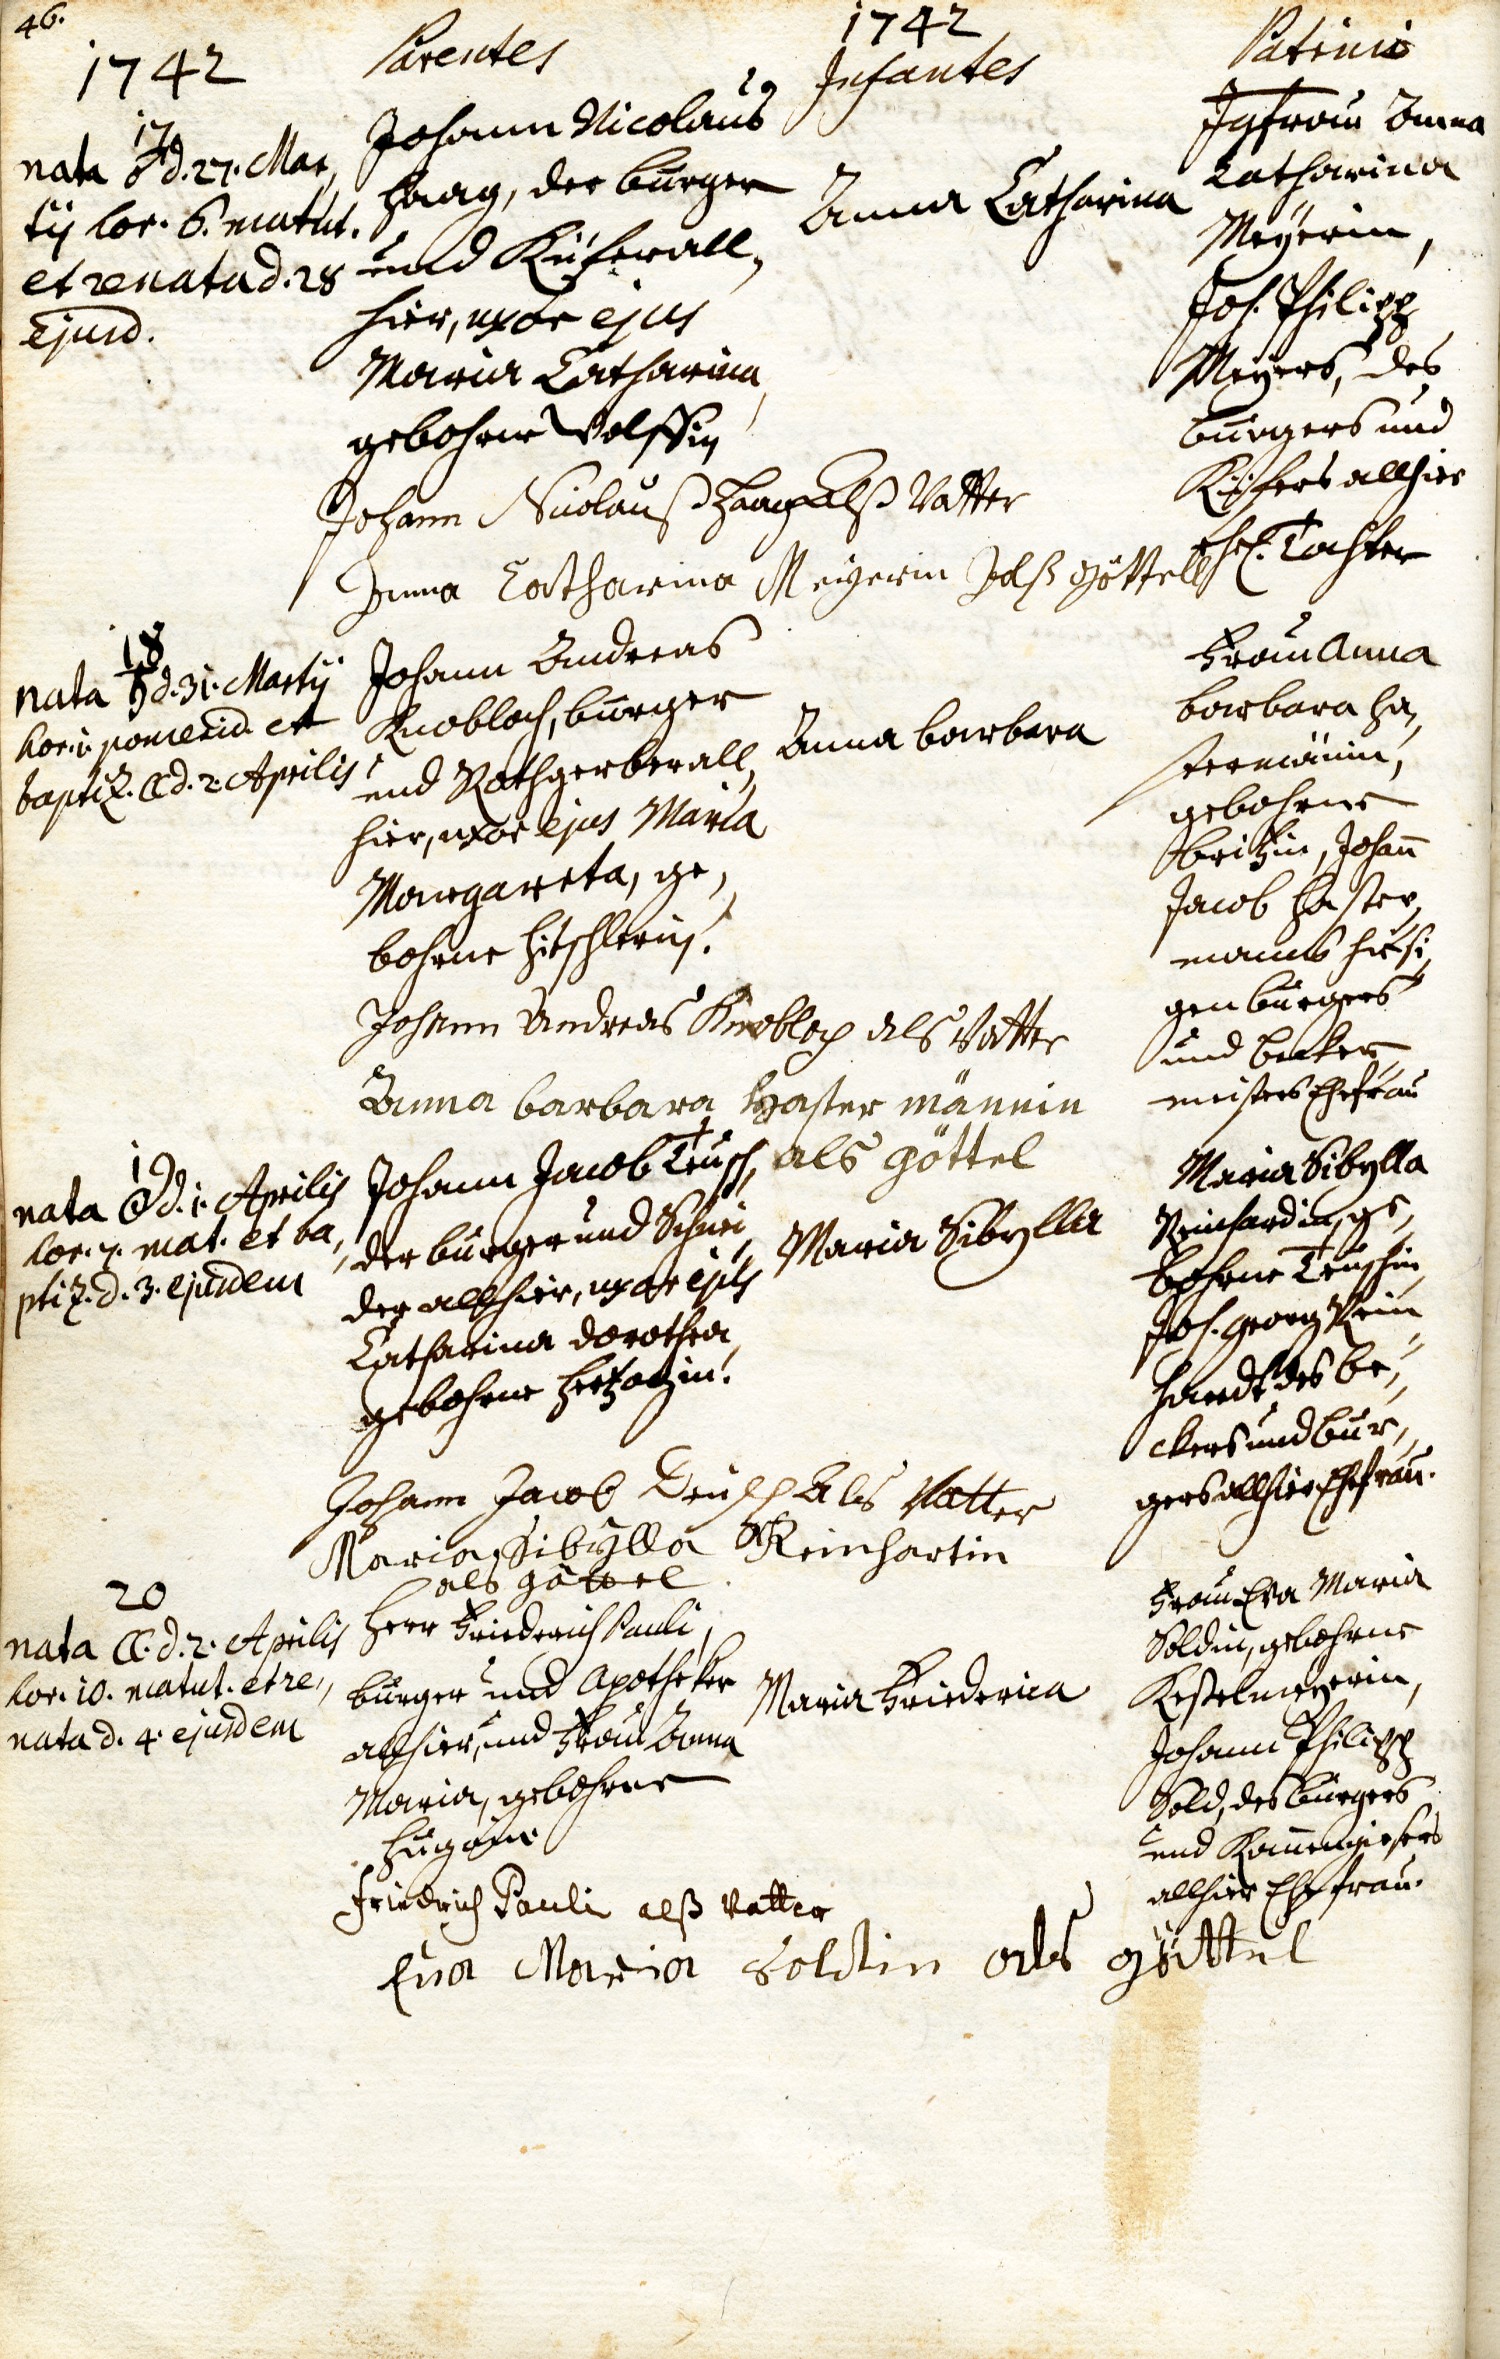 46.
1742
Parentes
1742
Infantes
Patrini
17
nata ♂ d. 27. Mar,
tij hor. 6. matut.
et renata d. 28
ejusd.
Johann Nicolaus
Haag, der burger
und Küfer all,
hier, uxor ejus
Maria Catharina,
gebohrne Wolffin
Anna Catharina
Jgfrau Anna
Catharina
Meÿerin,
Joh. Philipp
Meyers, des
burgers und
Küfers allhier
ehel. Tochter
Johann Nicolauß Haag Alß Vatter
Anna Catharina Meyerin Alß göttell
18
nata ♄ d. 31. Martij
hor. 1. pomerid. et
baptiz. ☾ d. 2. Aprilis
Johann Andreas
Knobloch, burger
und Rothgerber all,
hier, uxor ejus Maria
Margareta, ge,
bohrne Hitschlerin.
Anna barbara
Frau Anna
barbara Ha,
stermännin,
gebohrne
Britzin, Johañ
Jacob Haster,
manns hiesi,
gen burgers
und becker,
meisters Ehefrau
Johann Andreas Knobloch als Vatter
Anna barbara Haster männin
als göttel
19
nata ☉ d. 1. Aprilis
hor. 7. mat. et ba,
ptiz. d. 3. ejusdem
Johann Jacob Teusch,
der burger und Schnei,
der allhier, uxor ejus
Catharina dorothea,
gebohrne Hertzogin.
Maria Sibylla
Maria Sibylla
Reinhardin, ge,
bohrne Teuschin,
Joh. Georg Rein,
hardt des be,
ckers und bur,
gers allhier Ehefrau.
Johann Jacob Deusch Als Vatter
Maria Sibÿlla Reinhartin
als göttel
20
nata ☾. d. 2. Aprilis
hor. 10. matut. et re,
nata d. 4. ejusdem
Herr Friederich Pauli,
burger und Apotheker
allhier, und Frau Anna
Maria, gebohrne
Hugoin
Maria Friederica
Frau Eva Maria
Soldin, gebohrne
Kestelmeyerin,
Johann Philipp
Sold, des burgers
und Kannengiesers
allhier Ehefrau.
Friedrich Pauli alß Vatter
Eva Maria Soldin als göttel